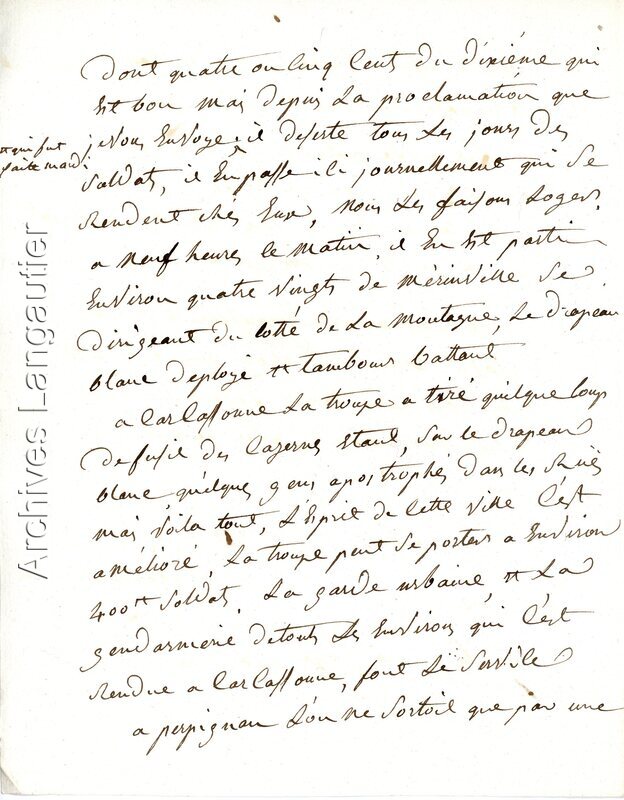 dont quatre ou cinq cent du dixiéme qui
est bon mais depuis la proclamation que
je vous Envoye il deserte tous les jours des
et qui fut
faite mardi
soldats, il En passe ici journellement qui se
Rendent chés Eux, nous les faisons Loger,
a neuf heures le matin, il En est parti
Environ quatre vingts de mérinville se
dirigeant du cotté de La montagne, Le drapeau
blanc deployé et tambours battant
a Carcassonne La troupe a tiré quelque coup
de fusil des Cazernes étant, sur le drapeau
blanc, quelques gens apostrophés dans les Ruës
mais voila tout, L'Esprit de cette ville C'est
amélioré, La troupe peut se porter a Environ
400 soldats, La garde urbaine, et La
gendarmerie de touts Les Environs qui C'est
Rendue a Carcassonne, font Le Service
a perpignan L'on ne Sortoit que par une
Archives Langautier